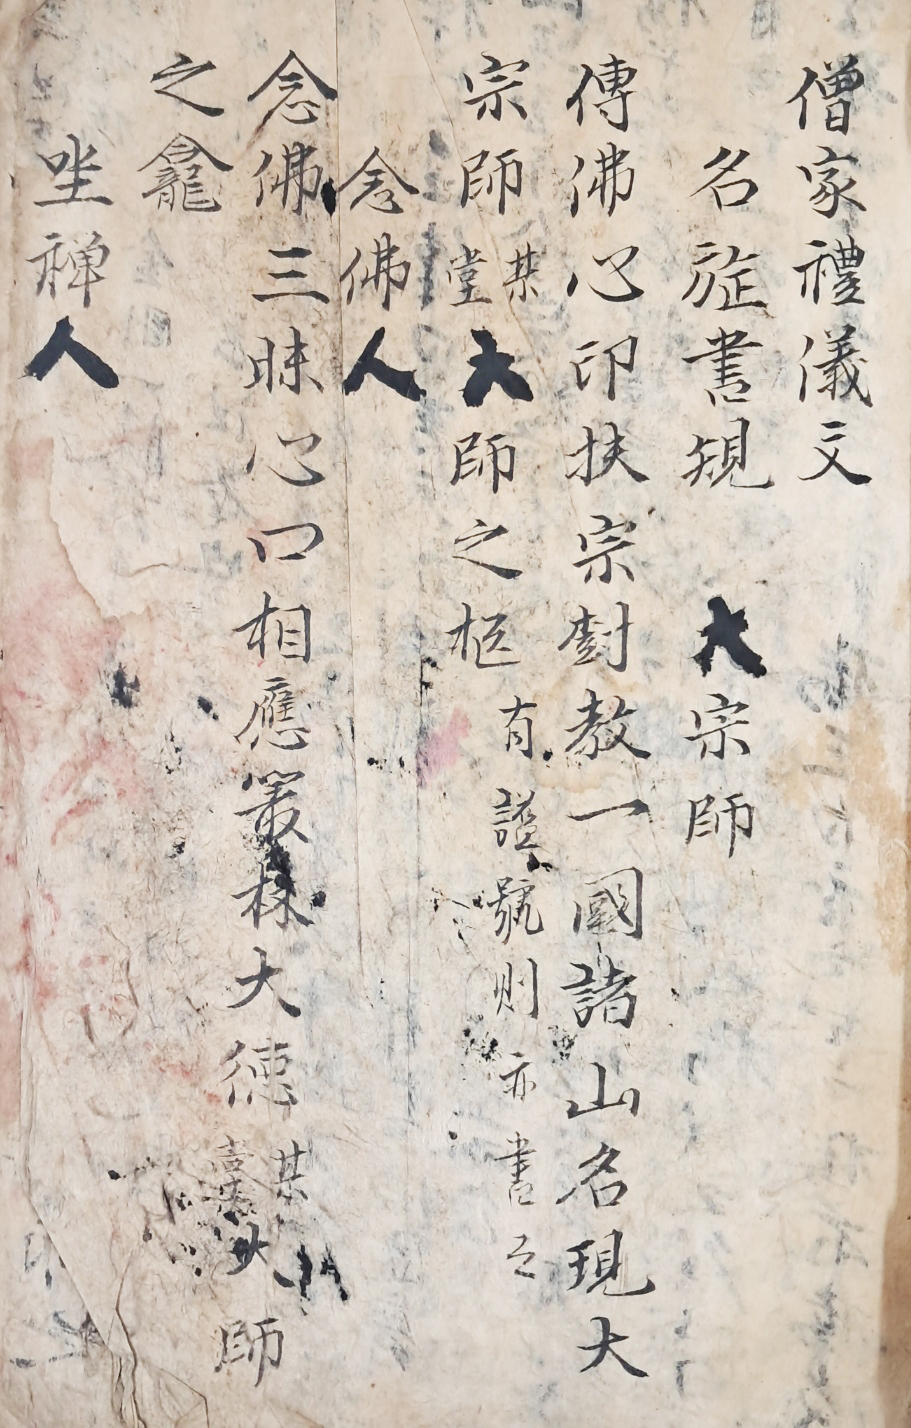 僧家禮儀文
名旌書規 大宗師
傳佛心印扶宗對教一國諸山名現大
宗師某堂大師之柩 有諡號則亦書之
念佛人
念佛三昧心口相應叢林大德某堂大師
之龕
坐禅人